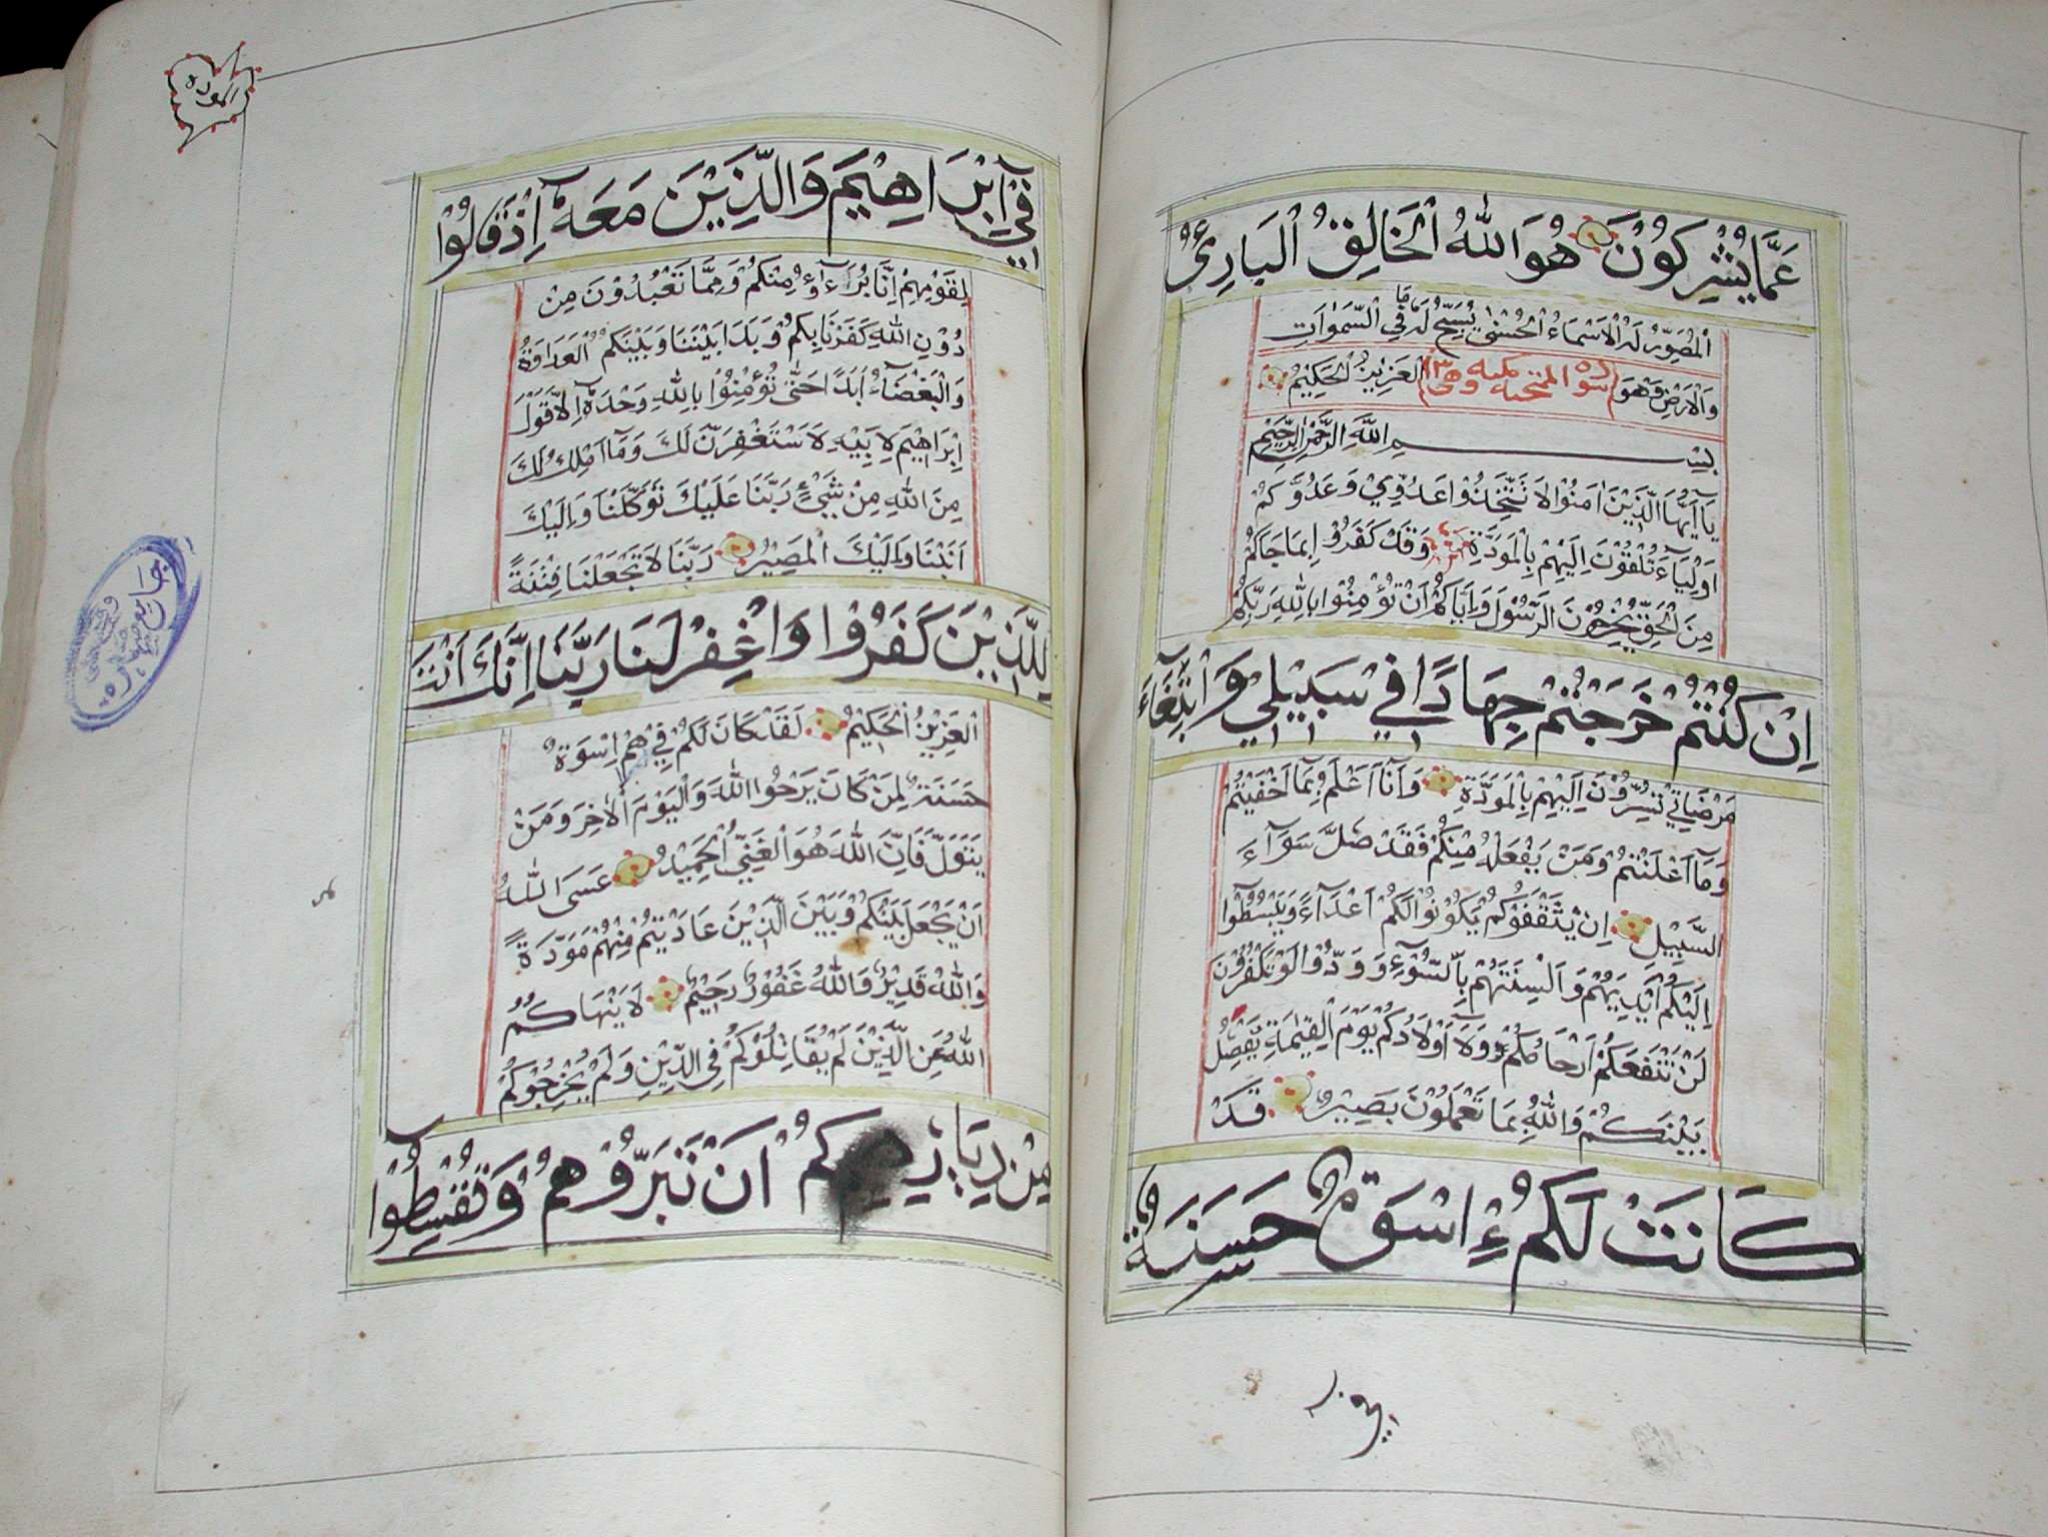 عَمَّا يُشْرِكُوْنَ هُوَ اللّٰهُ الْخَالِقُ الْبَارِئُ
الْمُصَوِّرُ لَهُ الْاَسْمَاءُ الْحُسْنٰى يُسَبِّحُ لَهٗ مَا فِي السَّمٰوَاتِ
وَالْاَرْضِ وَهُوَ الْعَزِيْزُ الْحَكِيْمُ
سورة الممتحنة مكيه وهى ١٣
بِسْمِ اللّٰهِ الرَّحْمٰنِ الرَّحِيْمِ
يَا اَيُّهَا الَّذِيْنَ اٰمَنُوْا لَا تَتَّخِذُوْا عَدُوِّيْ وَعَدُوَّكُمْ
اَوْلِيَآءَ تُلْقُوْنَ اِلَيْهِمْ بِالْمَوَدَّةِ وَقَدْ كَفَرُوْا بِمَا جَاءَكُمْ
مِنَ الْحَقِّ يُخْرِجُوْنَ الرَّسُوْلَ وَاِيَّاكُمْ اَنْ تُؤْمِنُوْا بِاللّٰهِ رَبِّكُمْ
اِنْ كُنْتُمْ خَرَجْتُمْ جِهَادًا فِيْ سَبِيْلِيْ وَابْتِغَآءَ
مَرْضَاتِيْ تُسِرُّوْنَ اِلَيْهِمْ بِالْمَوَدَّةِ وَاَنَا اَعْلَمُ بِمَا اَخْفَيْتُمْ
وَمَآ اَعْلَنْتُمْ وَمَنْ يَفْعَلْهُ مِنْكُمْ فَقَدْ ضَلَّ سَوَآءَ
السَّبِيْلِ اِنْ يَثْقَفُوْكُمْ يَكُوْنُوْا لَكُمْ اَعْدَآءً وَيَبْسُطُوْا
اِلَيْكُمْ اَيْدِيَهُمْ وَاَلْسِنَتَهُمْ بِالسُّوْٓءِ وَوَدُّوْا لَوْ تَكْفُرُوْنَ
لَنْ تَنْفَعَكُمْ اَرْحَامُكُمْ وَلَآ اَوْلَادُكُمْ يَوْمَ الْقِيٰمَةِ يَفْصِلُ
بَيْنَكُمْ وَاللّٰهُ بِمَا تَعْمَلُوْنَ بَصِيْرٌ قَدْ
كَانَتْ لَكُمْ اِسْوَةٌ حَسَنَةٌ
فِيْ
المودة
فِيْٓ اِبْرَاهِيْمَ وَالَّذِيْنَ مَعَهٗٓ اِذْ قَالُوْا
لِقَوْمِهِمْ اِنَّا بُرَآءٰٓؤُ مِنْكُمْ وَمِمَّا تَعْبُدُوْنَ مِنْ
دُوْنِ اللّٰهِ كَفَرْنَا بِكُمْ وَبَدَا بَيْنَنَا وَبَيْنَكُمُ الْعَدَاوَةُ
وَالْبَغْضَآءُ اَبَدًا حَتّٰى تُؤْمِنُوْا بِاللّٰهِ وَحْدَهٗٓ اِلَّا قَوْلَ
اِبْرَاهِيْمَ لِاَبِيْهِ لَاَسْتَغْفِرَنَّ لَكَ وَمَآ اَمْلِكُ لَكَ
مِنَ اللّٰهِ مِنْ شَيْءٍ رَبَّنَا عَلَيْكَ تَوَكَّلْنَا وَاِلَيْكَ
اَنَبْنَا وَاِلَيْكَ الْمَصِيْرُ رَبَّنَا لَا تَجْعَلْنَا فِتْنَةً
لِلَّذِيْنَ كَفَرُوْا وَاغْفِرْ لَنَا رَبَّنَا اِنَّكَ اَنْتَ
الْعَزِيْزُ الْحَكِيْمُ لَقَدْ كَانَ لَكُمْ فِيْهِمْ اِسْوَةٌ
حَسَنَةٌ لِمَنْ كَانَ يَرْجُوا اللّٰهَ وَالْيَوْمَ الْاٰخِرَ وَمَنْ
يَتَوَلَّ فَاِنَّ اللّٰهَ هُوَ الْغَنِيُّ الْحَمِيْدُ عَسَى اللّٰهُ
اَنْ يَجْعَلَ بَيْنَكُمْ وَبَيْنَ الَّذِيْنَ عَادَيْتُمْ مِنْهُمْ مَوَدَّةً
وَاللّٰهُ قَدِيْرٌ وَاللّٰهُ غَفُوْرٌ رَحِيْمٌ لَا يَنْهَاكُمُ
اللّٰهُ عَنِ الَّذِيْنَ لَمْ يُقَاتِلُوْكُمْ فِي الدِّيْنِ وَلَمْ يُخْرِجُوْكُمْ
مِنْ دِيَارِكُمْ اَنْ تَبَرُّوْهُمْ وَتُقْسِطُوْا